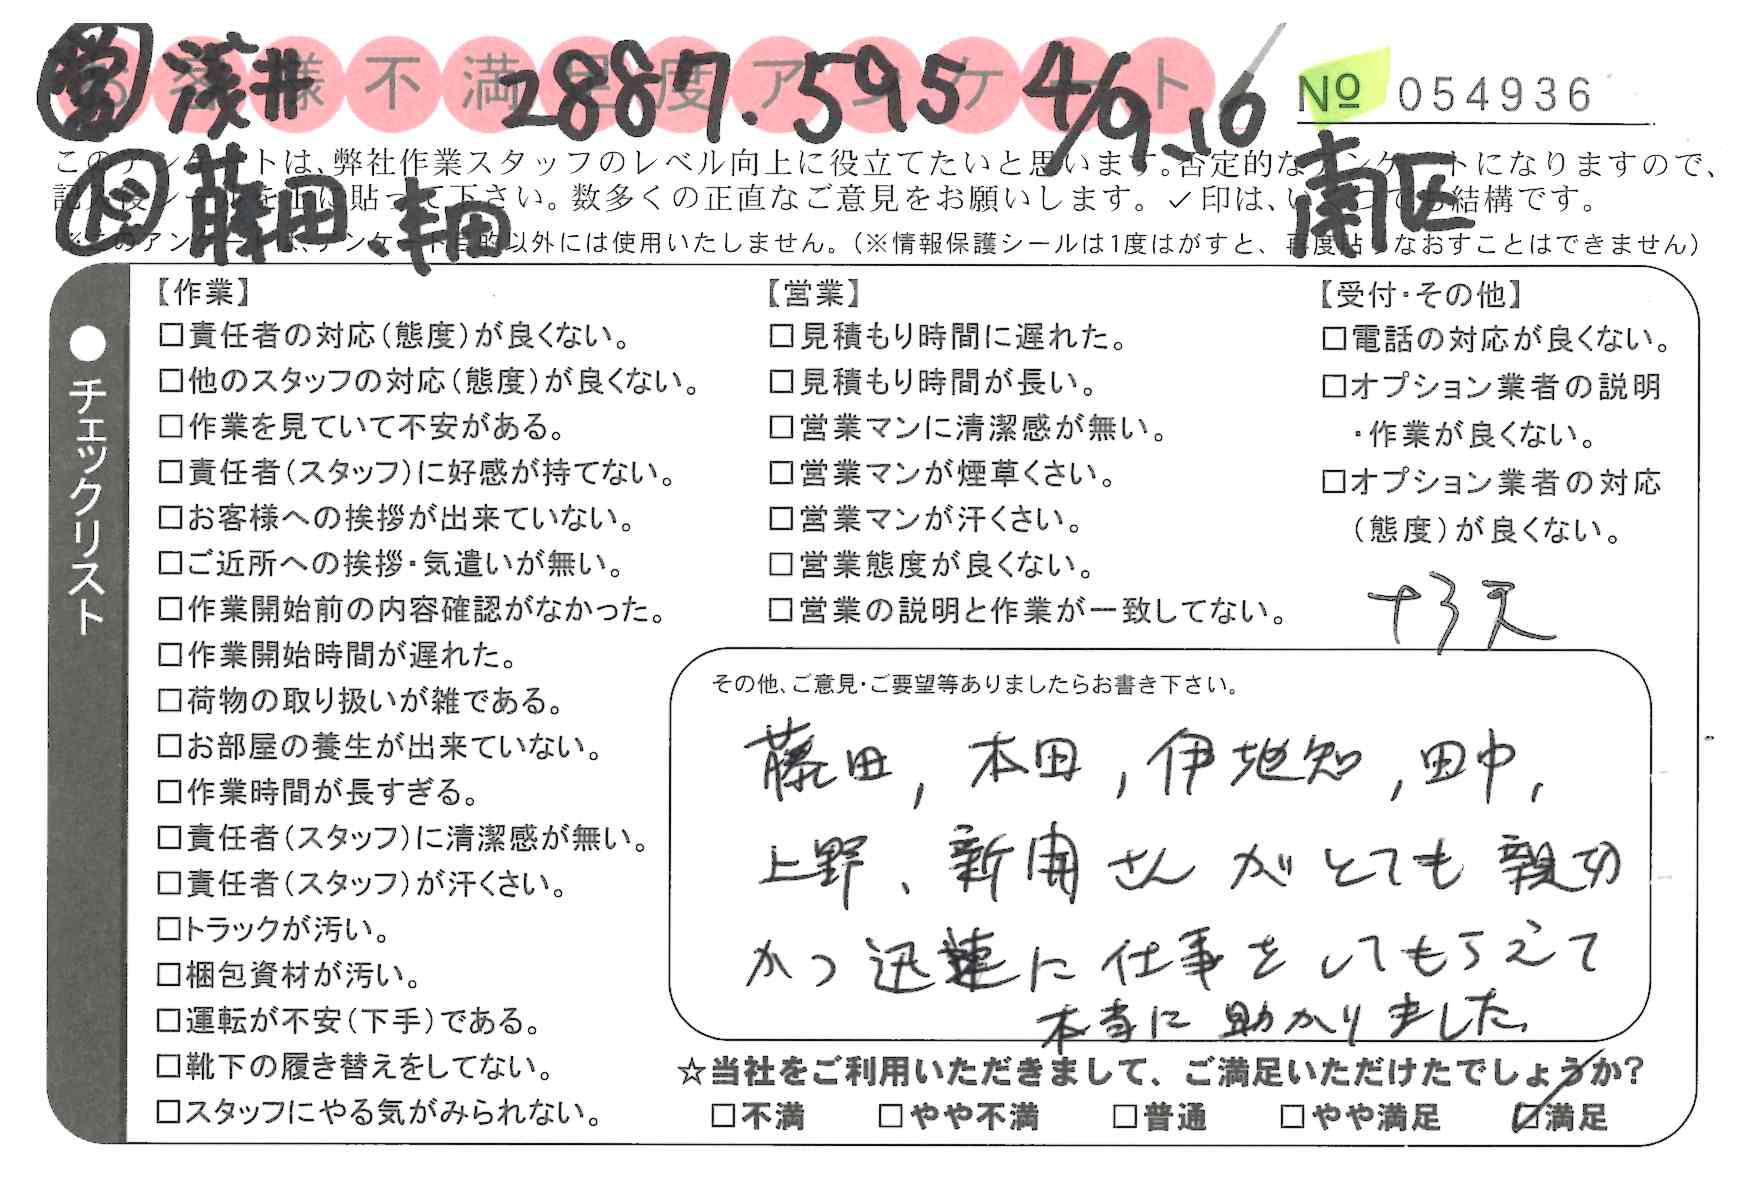 お客様不満足度アンケート
営 浅井 2887.595 4/9.10
№ 054936
このアンケートは、弊社作業スタッフのレベル向上に役立てたいと思います。否定的なアンケートになりますので、
記入後シールを上に貼って下さい。数多くの正直なご意見をお願いします。✓印は、いくつでも結構です。
ド 藤田、半田 南区
※このアンケートは、アンケート目的以外には使用いたしません。（※情報保護シールは1度はがすと、再度貼りなおすことはできません）
●チェックリスト
【作業】
□責任者の対応（態度）が良くない。
□他のスタッフの対応（態度）が良くない。
□作業を見ていて不安がある。
□責任者（スタッフ）に好感が持てない。
□お客様への挨拶が出来ていない。
□ご近所への挨拶・気遣いが無い。
□作業開始前の内容確認がなかった。
□作業開始時間が遅れた。
□荷物の取り扱いが雑である。
□お部屋の養生が出来ていない。
□作業時間が長すぎる。
□責任者（スタッフ）に清潔感が無い。
□責任者（スタッフ）が汗くさい。
□トラックが汚い。
□梱包資材が汚い。
□運転が不安（下手）である。
□靴下の履き替えをしてない。
□スタッフにやる気がみられない。
【営業】
□見積もり時間に遅れた。
□見積もり時間が長い。
□営業マンに清潔感が無い。
□営業マンが煙草くさい。
□営業マンが汗くさい。
□営業態度が良くない。
□営業の説明と作業が一致してない。
【受付・その他】
□電話の対応が良くない。
□オプション業者の説明
・作業が良くない。
□オプション業者の対応
（態度）が良くない。
その他、ご意見・ご要望等ありましたらお書き下さい。
藤田, 本田, 伊地知, 田中,
上野、新開さんがとても親切
かつ迅速に仕事をしてもらえて
本当に助かりました。
☆当社をご利用いただきまして、ご満足いただけたでしょうか？
□不満 □やや不満 □普通 □やや満足 ☑満足